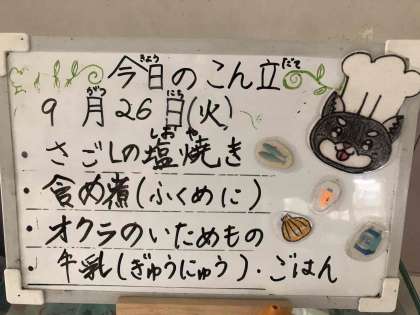 今日のこん立
きょう だて
9月26日(火)
がつ にち
しおや
さごしの塩焼き
・含め煮(ふくめに)
・オクラのいためもの
・牛乳(ぎゅうにゅう)・ごはん